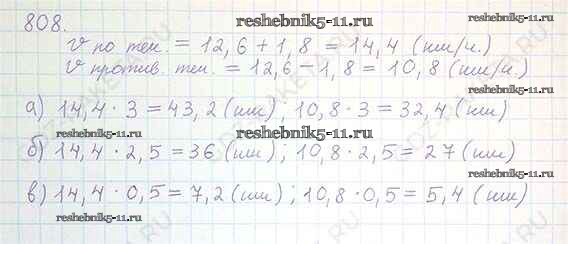 808. reshebnik5-11.ru
v по теч. = 12,6 + 1,8 = 14,4 (км/ч.)
v против. теч. = 12,6 - 1,8 = 10,8 (км/ч.)
reshebnik5-11.ru
а) 14,4 · 3 = 43,2 (км) 10,8 · 3 = 32,4 (км)
reshebnik5-11.ru reshebnik5-11.ru
б) 14,4 · 2,5 = 36 (км); 10,8 · 2,5 = 27 (км)
в) 14,4 · 0,5 = 7,2 (км); 10,8 · 0,5 = 5,4 (км)
reshebnik5-11.ru
reshebnik5-11.ru